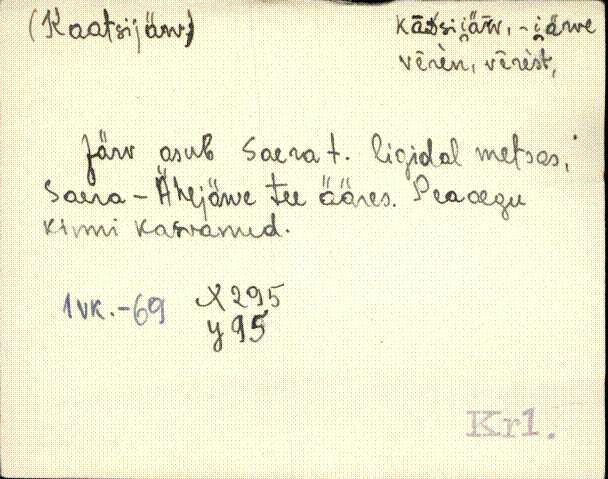 (Kaatsijärv)
kāt̀siǰäŕv, -ĭärve
vērèn, vērèst,
Järv asub Saera t. ligidal metsas,
Saera-Ähejärve tee ääres. Peaaegu
kinni kasvanud.
1 vk.-69 X 295
y 95
Kr1.